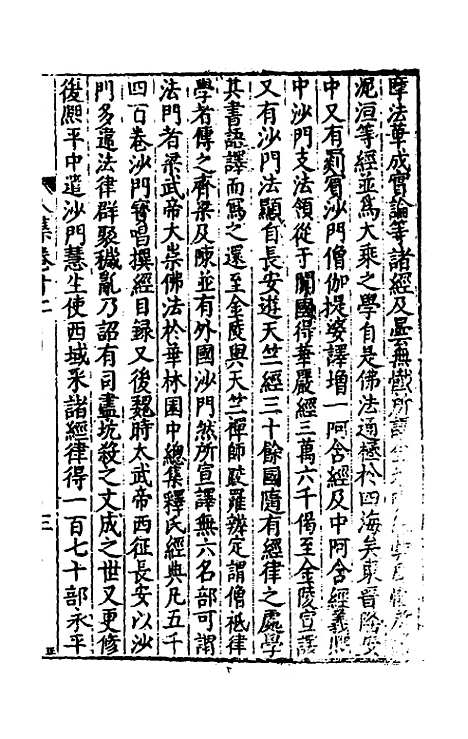 摩法華成實論等諸經及曇無懺所譯
泥洹等經並爲大乘之學自是佛法通極於四海矣東晉隆安
中又有罽賓沙門僧伽提婆譯增一阿含經及中阿含經義熙
中沙門支法領從于闐國得華嚴經三萬六千偈至金陵宣譯
又有沙門法顯自長安遊天竺經三十餘國隨有經律之處學
其書語譯而寫之還至金陵與天竺禪師䟦羅辨定謂僧祇律
學者傳之齊梁及陳並有外國沙門然所宣譯無六名部可謂
法門者梁武帝大崇佛法於華林園中總集釋氏經典凡五千
四百卷沙門寳唱撰經目録又後魏時太武帝西征長安以沙
門多違法律群聚穢亂乃詔有司盡坑殺之文成之世又更修
復熙平中遣沙門慧生使西域釆諸經律得一百七十部永平
集卷十二
三